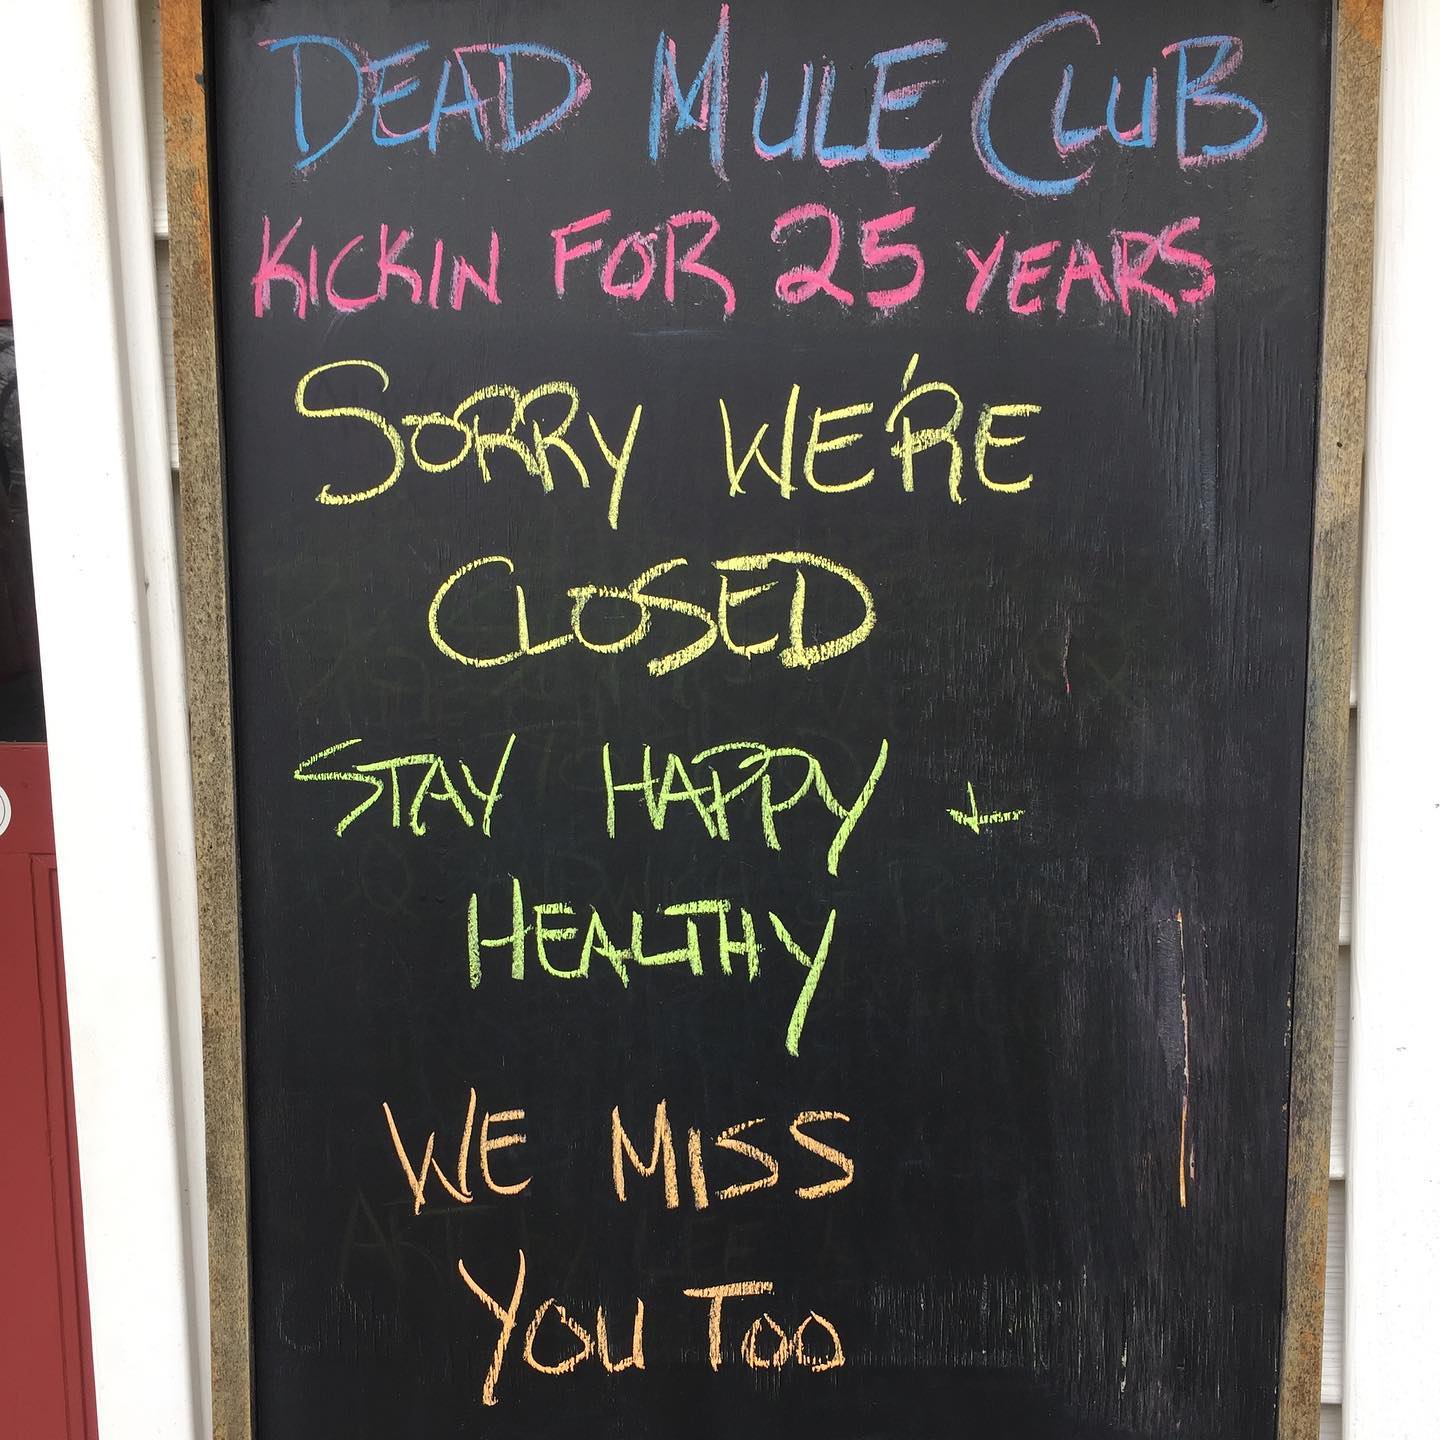 DEAD MULE CLUB
KICKIN FOR 25 YEARS
SORRY WE'RE
CLOSED
STAY HAPPY +
HEALTHY
WE MISS
YOU TOO